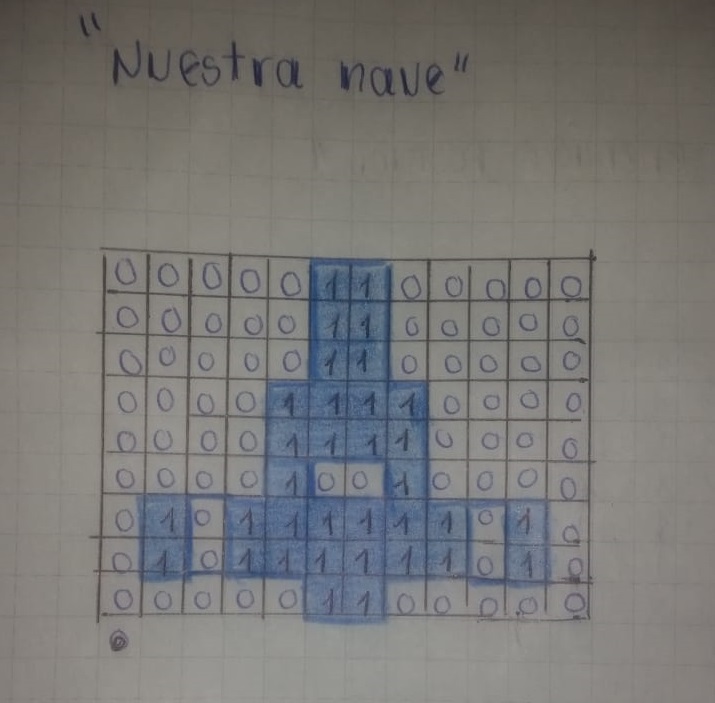 "Nuestra nave"
0 0 0 0 0 1 1 0 0 0 0 0
0 0 0 0 0 1 1 0 0 0 0 0
0 0 0 0 0 1 1 0 0 0 0 0
0 0 0 0 1 1 1 1 0 0 0 0
0 0 0 0 1 1 1 1 0 0 0 0
0 0 0 0 1 0 0 1 0 0 0 0
0 1 0 1 1 1 1 1 1 0 1 0
0 1 0 1 1 1 1 1 1 0 1 0
0 0 0 0 0 1 1 0 0 0 0 0